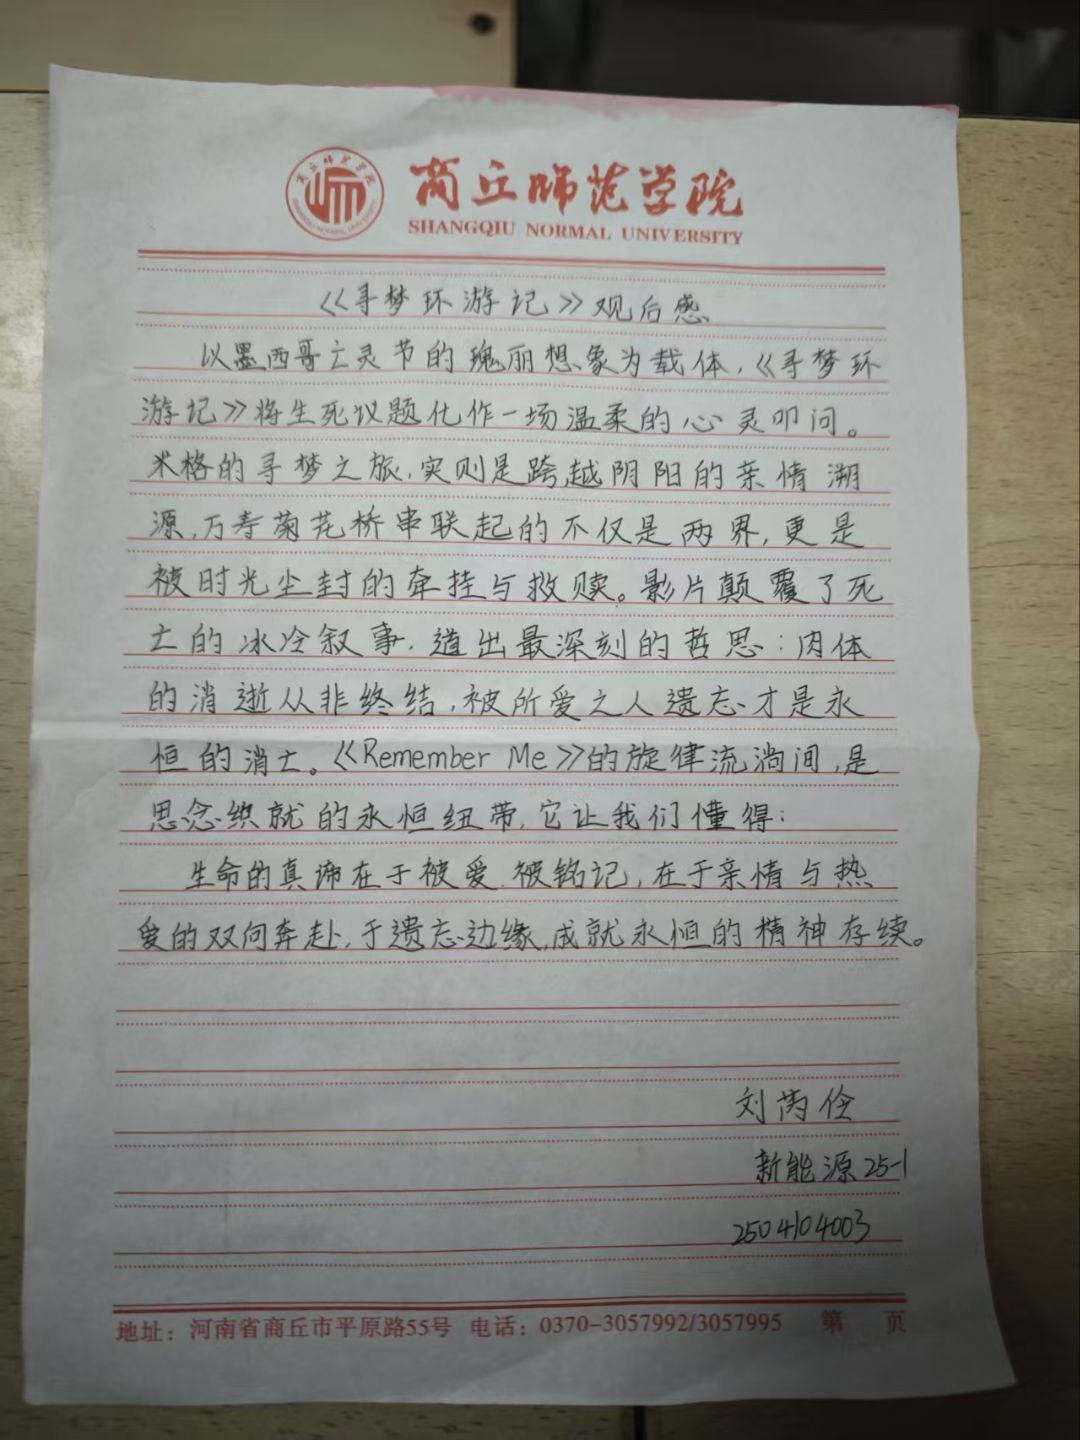 商丘师范学院
SHANGQIU NORMAL UNIVERSITY
《寻梦环游记》观后感
以墨西哥亡灵节的瑰丽想象为载体，《寻梦环
游记》将生死议题化作一场温柔的心灵叩问。
米格的寻梦之旅，实则是跨越阴阳的亲情溯
源，万寿菊花桥串联起的不仅是两界，更是
被时光尘封的牵挂与救赎。影片颠覆了死
亡的冰冷叙事，道出最深刻的哲思：肉体
的消逝从非终结，被所爱之人遗忘才是永
恒的消亡。《Remember Me》的旋律流淌间，是
思念织就的永恒纽带，它让我们懂得：
生命的真谛在于被爱、被铭记，在于亲情与热
爱的双向奔赴，于遗忘边缘，成就永恒的精神存续。
刘芮伶
新能源25-1
2504104003
地址：河南省商丘市平原路55号 电话：0370-3057992/3057995 第 页